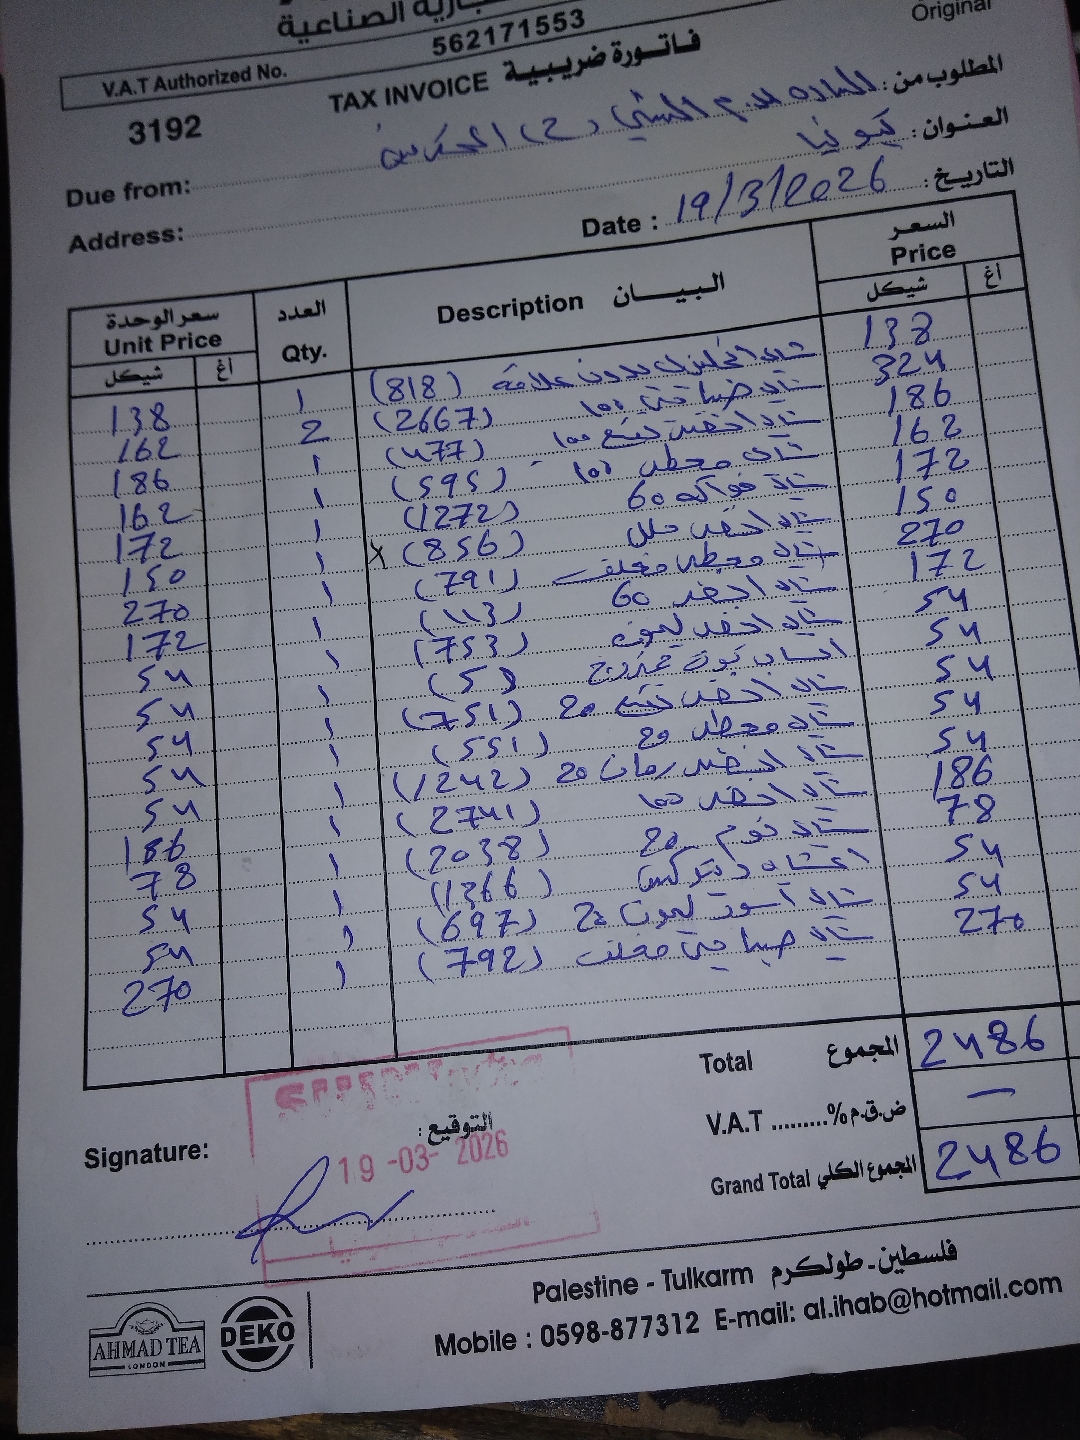 الصناعية
562171553
V.A.T Authorized No.
Original
TAX INVOICE فاتورة ضريبية
3192
المطلوب من:
Due from:
العنوان:
Address:
Date : 19/3/2026 التاريخ:
سعر الوحدة العدد البيـــــان السعر
Unit Price Qty. Description Price
شيكل اغ شيكل اغ
138 ١ (818) شاي انجليزي بدون علاقة 138
162 2 (2667) شاي صباحي ١٠٠ 324
186 ١ (477) شاي اخضر نعنع ١٠٠ 186
162 ١ (595) شاي معطر ١٠٠ 162
172 ١ (1272) شاي فواكه 60 172
150 ١ x (856) شاي اخضر 150
270 ١ (791) شاي معطر مغلف 270
172 ١ (113) شاي اخضر 60 172
54 ١ (753) شاي اخضر ليمون 54
54 ١ (5) 54
54 ١ (751) شاي اخضر نعنع 20 54
54 ١ (551) شاي معطر 20 54
54 ١ (1242) شاي اخضر رمان 20 54
186 ١ (2741) شاي اخضر ١٠٠ 186
78 ١ (2038) شاي نوم 20 78
54 ١ (1366) اعشاب ديتوكس 54
54 ١ (697) شاي اسود ليمون 20 54
270 ١ (792) شاي صباحي مغلف 270
Total المجموع 2486
V.A.T .........% ض.ق.م —
Grand Total المجموع الكلي 2486
Signature: التوقيع:
19 -03- 2026
Palestine - Tulkarm فلسطين - طولكرم
Mobile : 0598-877312 E-mail: al.ihab@hotmail.com
AHMAD TEA
LONDON
DEKO